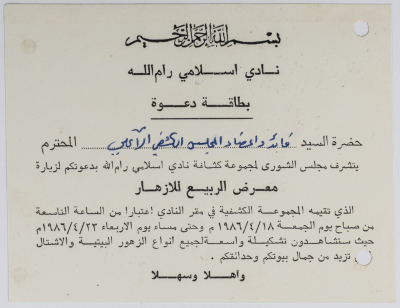 بسم الله الرحمن الرحيم
نادي اسلامي رام الله
بطاقة دعوة
حضرة السيد قائد واعضاء المجلس الكشفي الأعلى المحترم
يتشرف مجلس الشورى لمجموعة كشافة نادي اسلامي رام الله بدعوتكم لزيارة
معرض الربيع للازهار
الذي تقيمه المجموعة الكشفية في مقر النادي اعتبارا من الساعة التاسعة
من صباح يوم الجمعة ١٩٨٦/٤/١٨ م وحتى مساء يوم الاربعاء ١٩٨٦/٤/٢٣م
حيث ستشاهدون تشكيلة واسعة لجميع انواع الزهور البيتية والاشتال
تزيد من جمال بيوتكم وحدائقكم .
واهلا وسهلا